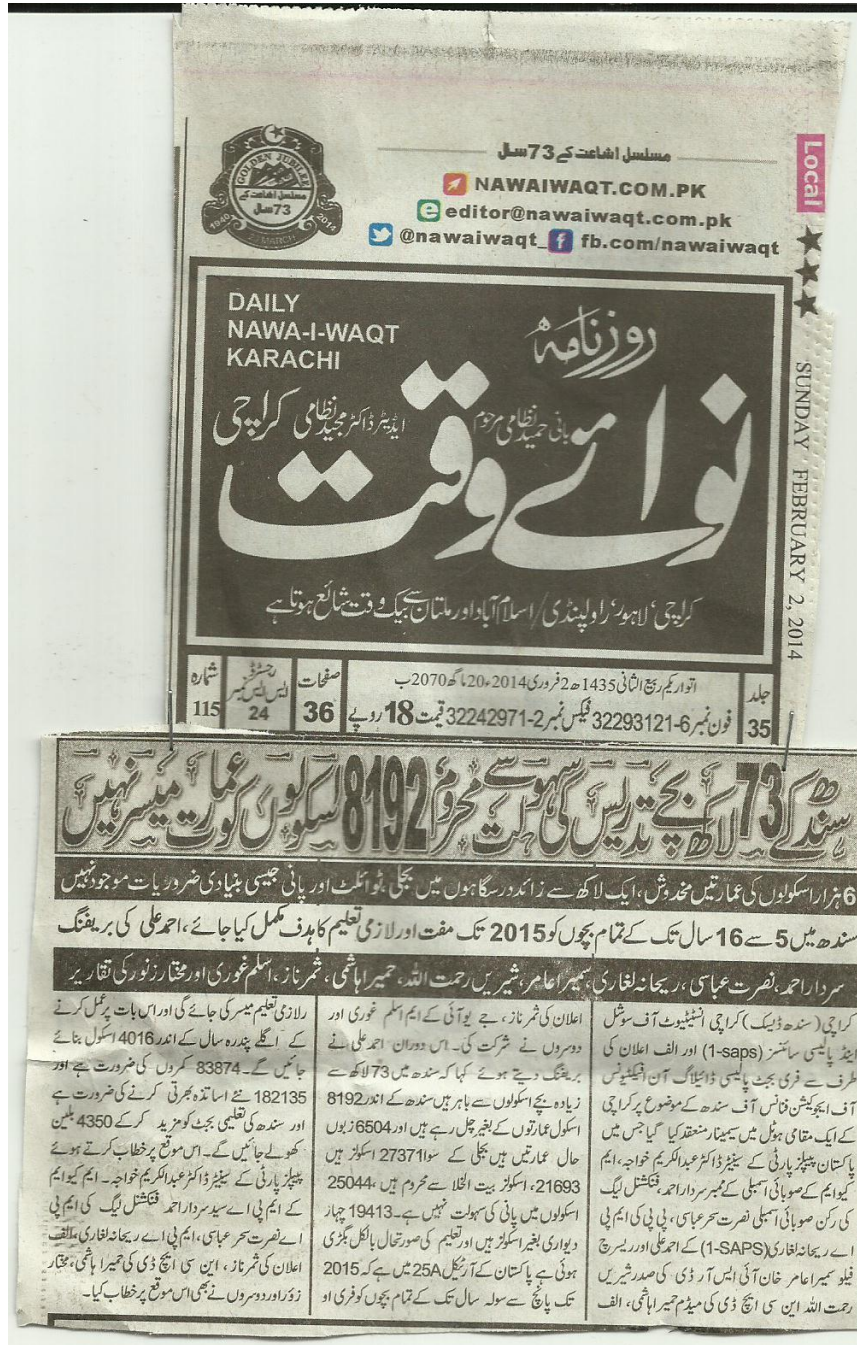 مسلسل اشاعت کے 73 سال
Local
NAWAIWAQT.COM.PK
editor@nawaiwaqt.com.pk
@nawaiwaqt_ fb.com/nawaiwaqt
GOLDEN JUBILEE
مسلسل اشاعت کے
73 سال
1940 23 MARCH 2014
SUNDAY FEBRUARY 2, 2014
DAILY
NAWA-I-WAQT
KARACHI
روزنامہ
نوائے وقت
بانی حمید نظامی مرحوم
ایڈیٹر ڈاکٹر مجید نظامی
کراچی
کراچی، لاہور، راولپنڈی/اسلام آباد اور ملتان سے بیک وقت شائع ہوتا ہے
جلد
35
اتوار یکم ربیع الثانی 1435ھ 2 فروری 2014ء 20 ماگھ 2070ب
فون نمبر 6-32293121 فیکس نمبر 2-32242971 قیمت 18 روپے
صفحات
36
رجسٹرڈ
ایس ایس نمبر
24
شمارہ
115
سندھ کے 73 لاکھ بچے تدریس کی سہولت سے محروم 8192 اسکولوں کو عمارت میسر نہیں
6 ہزار اسکولوں کی عمارتیں مخدوش، ایک لاکھ سے زائد درسگاہوں میں بجلی، ٹوائلٹ اور پانی جیسی بنیادی ضروریات موجود نہیں
سندھ میں 5 سے 16 سال تک کے تمام بچوں کو 2015 تک مفت اور لازمی تعلیم کا ہدف مکمل کیا جائے، احمد علی کی بریفنگ
سردار احمد، نصرت عباسی، ریحانہ لغاری، سمیرا عامر، شیریں رحمت اللہ، حمیرا ہاشمی، ثمر ناز، اسلم غوری اور مختار زنور کی تقاریر
کراچی (سندھ ڈیسک) کراچی انسٹیٹیوٹ آف سوشل
اینڈ پالیسی سائنسز (1-saps) اور الف اعلان کی
طرف سے فری بجٹ پالیسی ڈائیلاگ آن افیکٹیونس
آف ایجوکیشن فنانس آف سندھ کے موضوع پر کراچی
کے ایک مقامی ہوٹل میں سیمینار منعقد کیا گیا جس میں
پاکستان پیپلز پارٹی کے سینیٹر ڈاکٹر عبدالکریم خواجہ، ایم
کیو ایم کے صوبائی اسمبلی کے ممبر سردار احمد، فنکشنل لیگ
کی رکن صوبائی اسمبلی نصرت سحر عباسی، پی پی کی ایم پی
اے ریحانہ لغاری (1-SAPS) کے احمد علی اور ریسرچ
فیلو سمیرا عامر خان آئی ایس آر ڈی کی صدر شیریں
رحمت اللہ این سی ایچ ڈی کی میڈم حمیرا ہاشمی، الف
اعلان کی ثمر ناز، جے یو آئی کے ایم اسلم غوری اور
دوسروں نے شرکت کی۔ اس دوران احمد علی نے
بریفنگ دیتے ہوئے کہا کہ سندھ میں 73 لاکھ سے
زیادہ بچے اسکولوں سے باہر ہیں سندھ کے اندر 8192
اسکول عمارتوں کے بغیر چل رہے ہیں اور 6504 زبوں
حال عمارتیں ہیں بجلی کے سوا 27371 اسکولز ہیں
21693، اسکولز بیت الخلا سے محروم ہیں، 25044
اسکولوں میں پانی کی سہولت نہیں ہے۔ 19413 چہار
دیواری بغیر اسکولز ہیں اور تعلیم کی صورتحال بالکل بگڑی
ہوئی ہے پاکستان کے آرٹیکل 25A میں ہے کہ 2015
تک پانچ سے سولہ سال تک کے تمام بچوں کو فری او
رلازمی تعلیم میسر کی جائے گی اور اس بات پر عمل کرنے
کے اگلے پندرہ سال کے اندر 4016 اسکول بنائے
جائیں گے۔ 83874 کمروں کی ضرورت ہے اور
182135 نئے اساتذہ بھرتی کرنے کی ضرورت ہے
اور سندھ کی تعلیمی بجٹ کو مزید کر کے 4350 بلین
کھولے جائیں گے۔ اس موقع پر خطاب کرتے ہوئے
پیپلز پارٹی کے سینیٹر ڈاکٹر عبدالکریم خواجہ۔ ایم کیو ایم
کے ایم پی اے سید سردار احمد فنکشنل لیگ کی ایم پی
اے نصرت سحر عباسی، ایم پی اے ریحانہ لغاری، الف
اعلان کی ثمر ناز، این سی ایچ ڈی کی حمیرا ہاشمی، مختار
زؤر اور دوسروں نے بھی اس موقع پر خطاب کیا۔